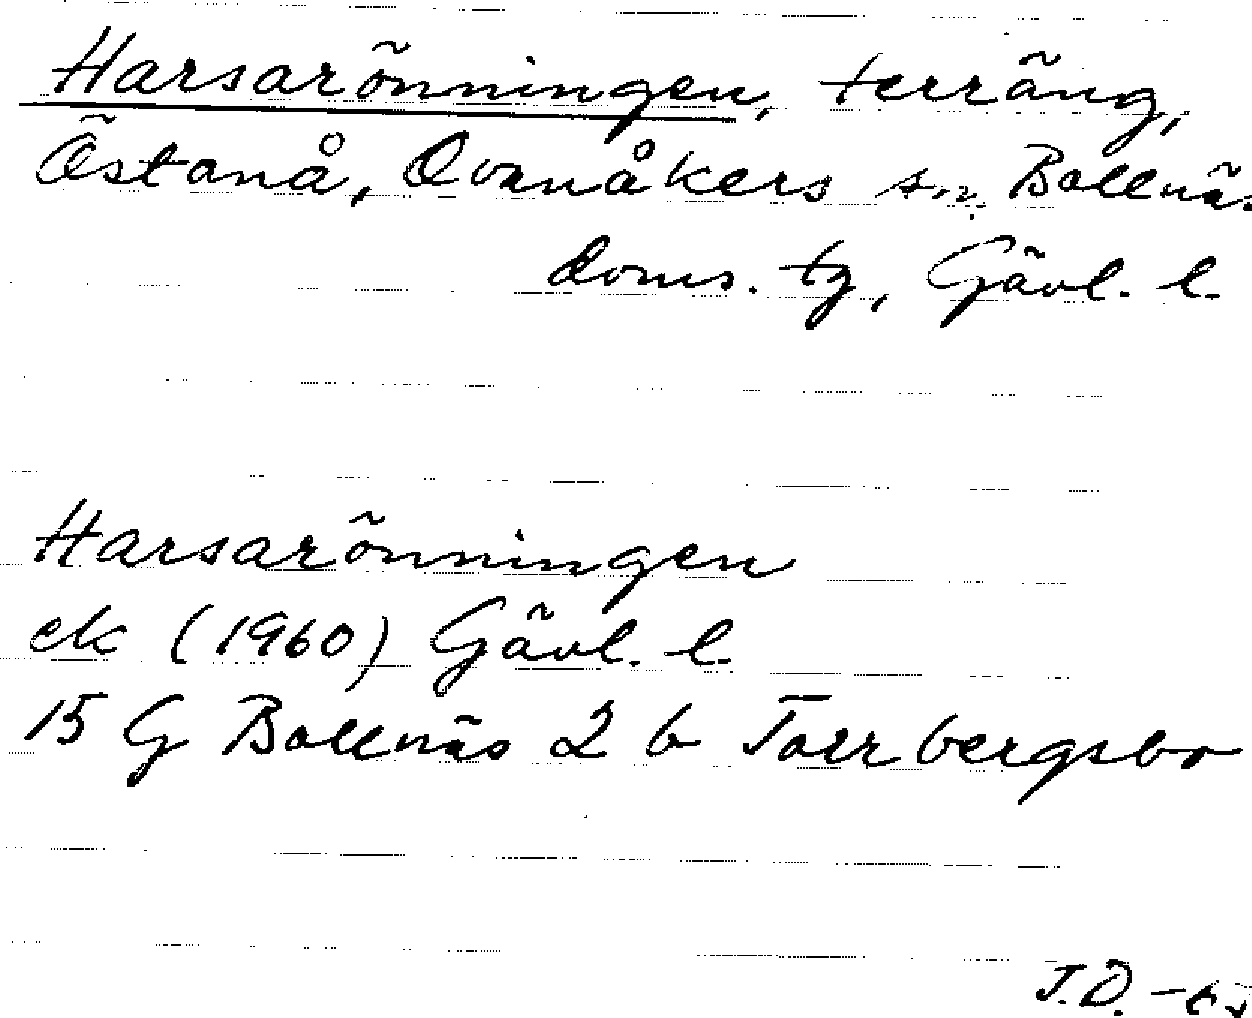 Harsarönningen, terräng,
Östanå, Ovanåkers sn, Bollnäs
doms. tg, Gävl. l.
Harsarönningen
ek (1960) Gävl. l.
15 G Bollnäs 2 b Tallbergsbo
J.Ö.